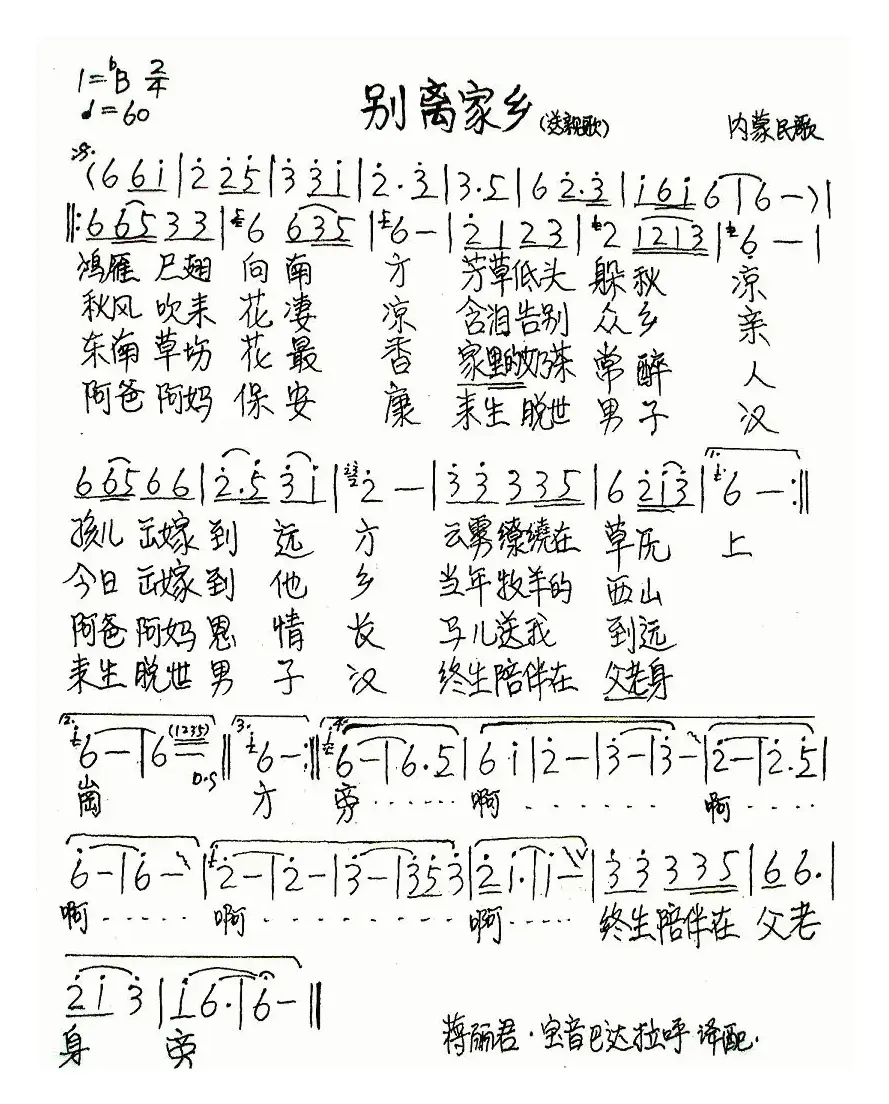 1=♭B 2/4
♩=60
别离家乡(送亲歌)
内蒙民歌
(6 6 i | 2 2 5 | 3 3 i | 2 . 3 | 3 . 5 | 6 2 . 3 | i 6 i 6 | 6 — ) |
‖: 6 6 5 3 3 | 6 6 3 5 | 6 — | 2 1 2 3 | 2 1 2 1 3 | 6 — |
鸿雁 尺翅 向南 方 芳草低头 躲秋 凉
秋风 吹来 花凄 凉 含泪告别 众乡 亲
东南 草场 花最 香 家里的奶茶 常醉 人
阿爸 阿妈 保安 康 来生脱世 男子 汉
6 6 5 6 6 | 2 . 5 3 i | 2 — | 3 3 3 3 5 | 6 2 i 3 | 1. 6 — :‖
孩儿 出嫁 到 远 方 云雾缭绕在 草原 上
今日 出嫁 到 他 乡 当年牧羊的 西山
阿爸 阿妈 恩 情 长 马儿送我 到远
来生 脱世 男 子 汉 终生陪伴在 父老身
2. 6 — | 6 (1235) — D.S ‖ 3. 6 — :‖ 4. 6 — | 6 . 5 | 6 . i | 2 — | 3 — | 3 — | 2 — | 2 . 5 |
岗 方 旁 …… 啊 …… 啊 ……
6 — | 6 — | 2 — | 2 — | 3 — | 3 5 3 | 2 i . | i — | 3 3 3 3 5 | 6 6 . |
啊 …… 啊 …… 啊 …… 终生陪伴在 父老
2 i 3 | i 6 . | 6 — ‖
身 旁
蒋丽君·宝音巴达拉呼 译配.